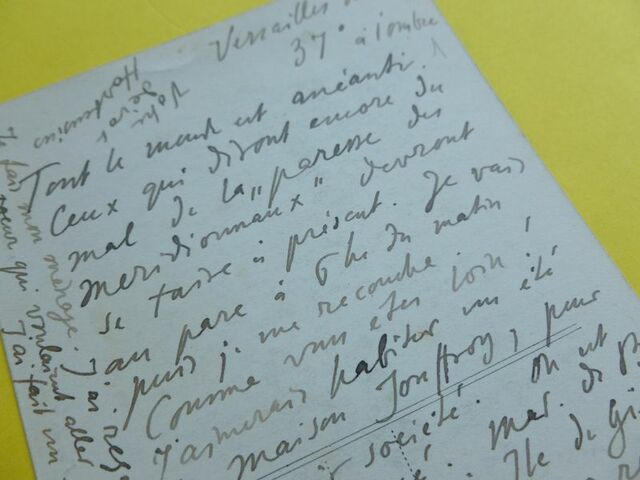 Versailles
37° à l'ombre
Tout le monde est anéanti.
Ceux qui diront encore du
mal de la "paresse des
méridionaux" devront
se taire à présent. Je vais
au parc à 6 h. du matin,
puis je me recouche.
Comme vous êtes loin !
J'aimerais habiter un été
maison Jouffroy, pour
société. On est
mar. de
Ile de
Je fais mon ménage. J'ai
soeur qui voulaient aller
J'ai fait un